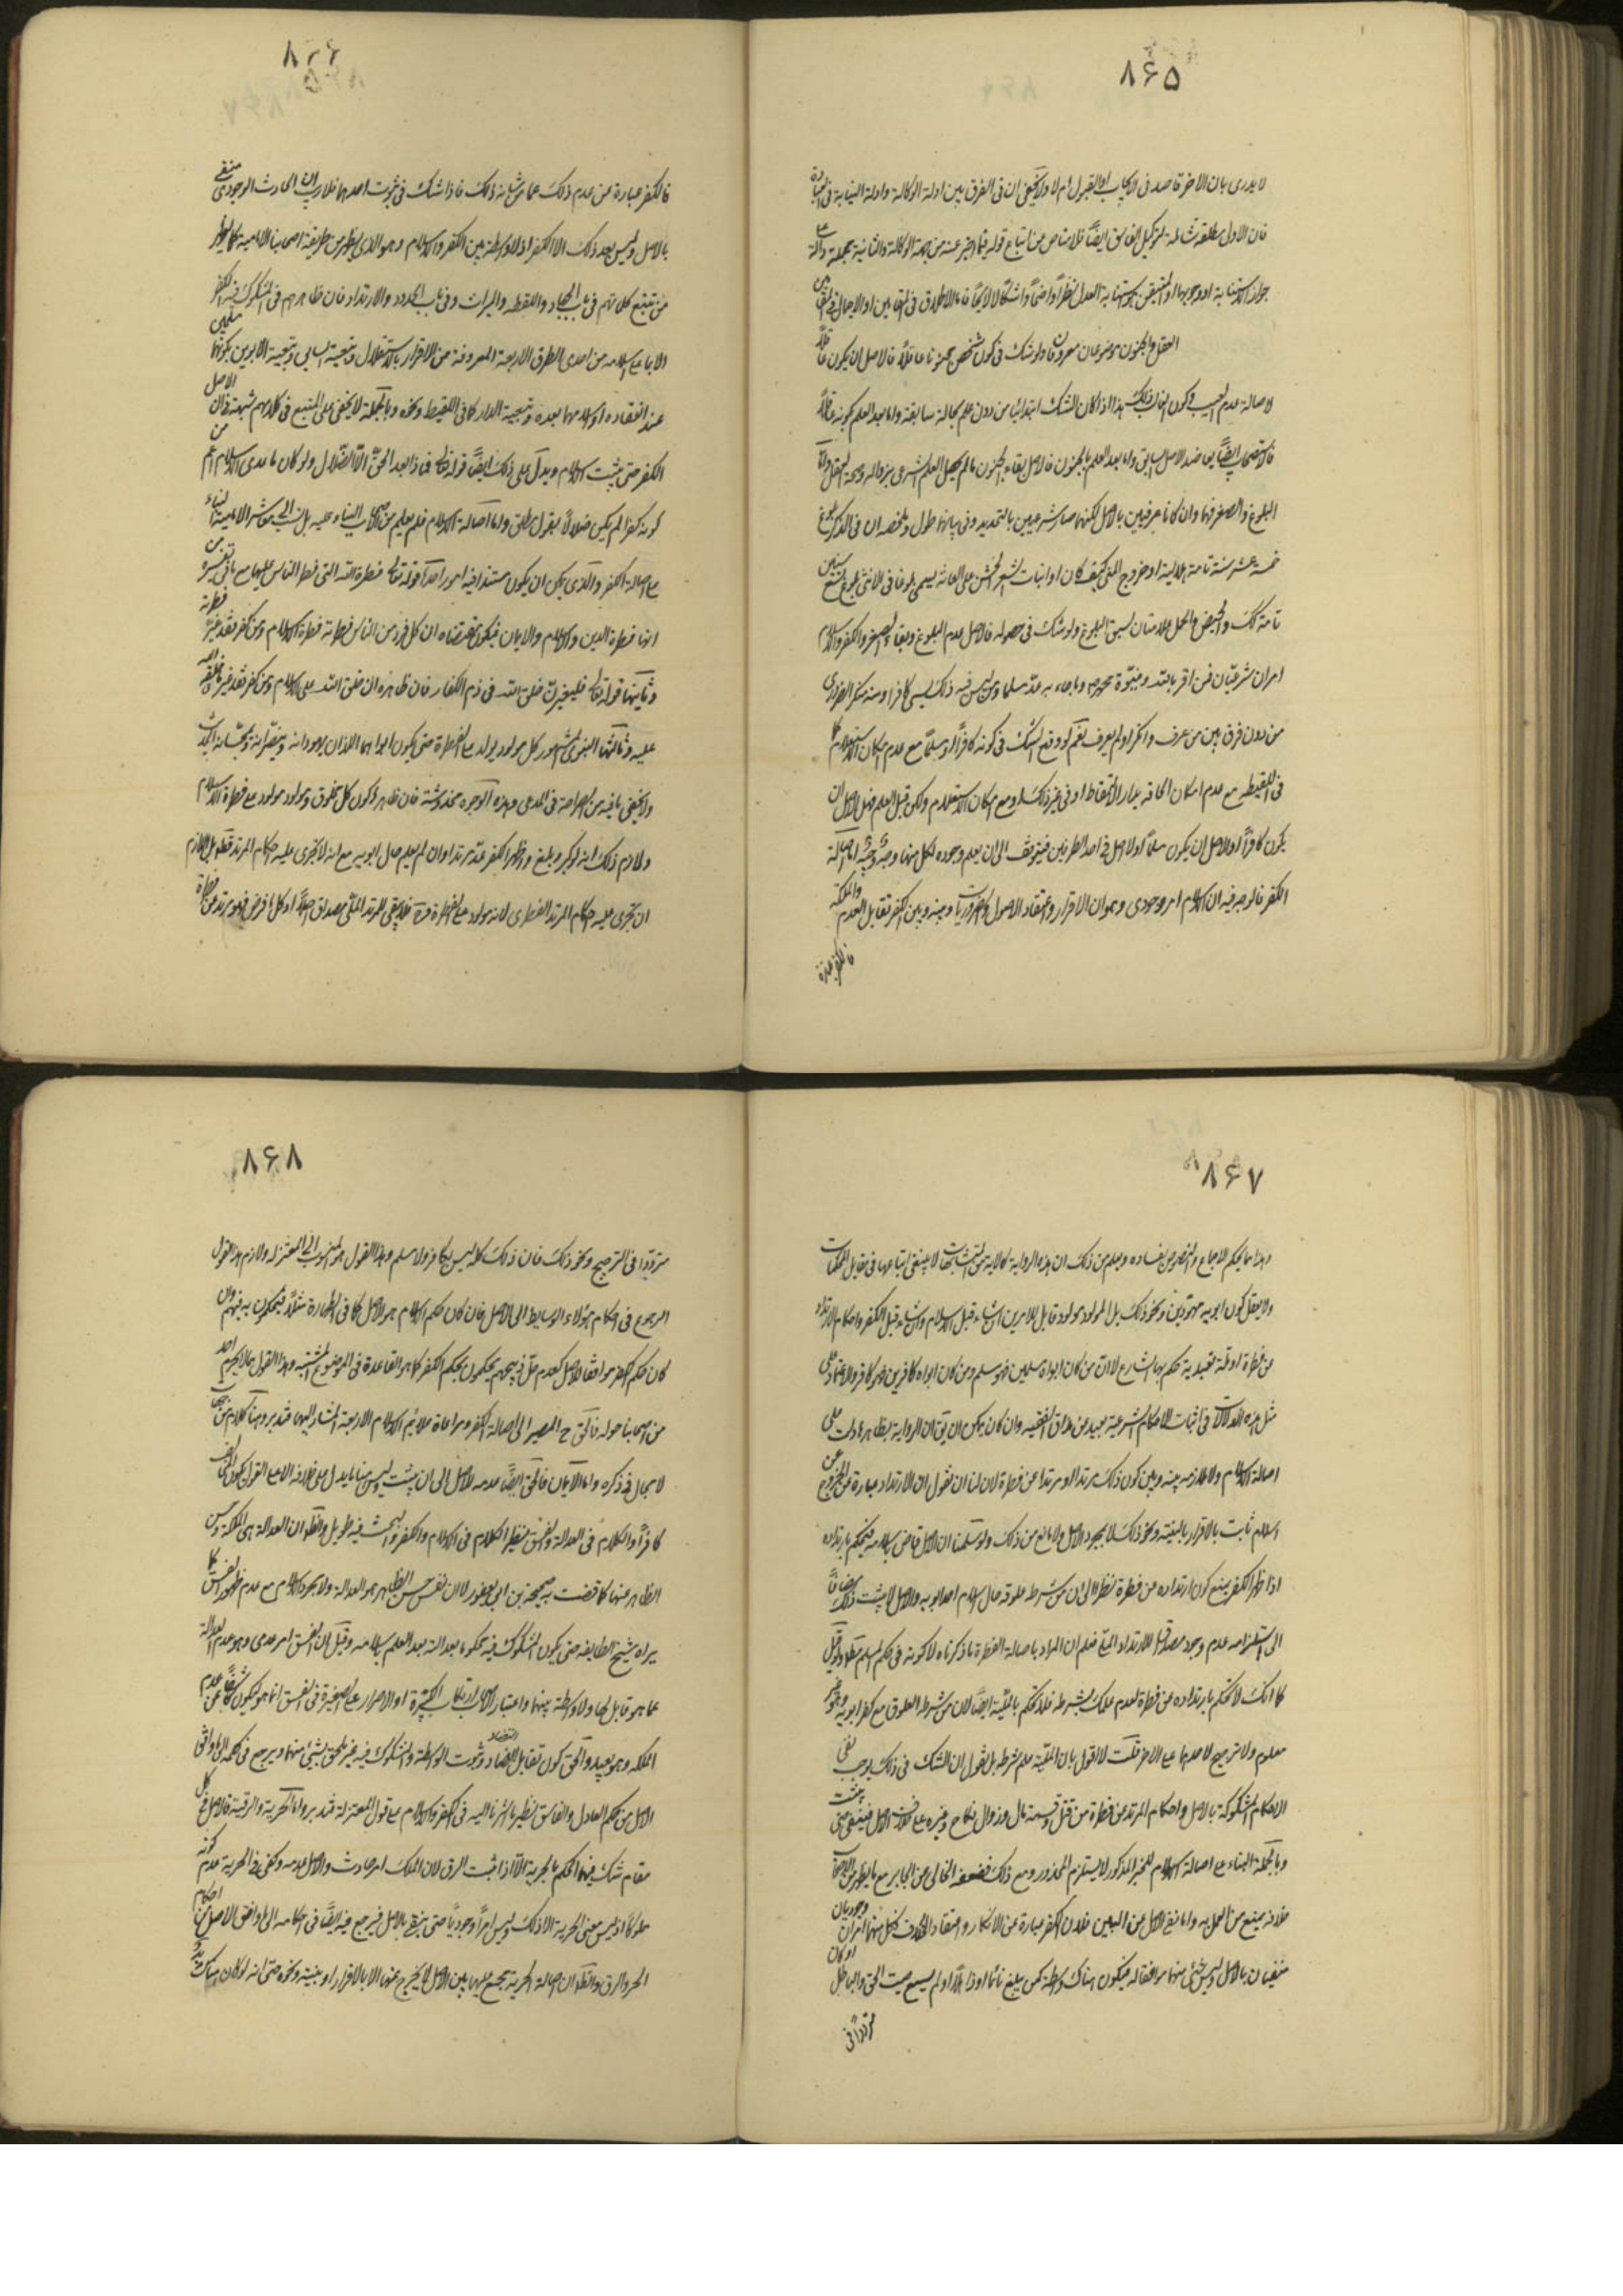 ٨۶۵
لا يدرى بان الاخر قاصد فى الايجاب او القبول ام لا ولا يخفى ان فى الفرق بين ادلة الوكالة وادلة النيابة فى العبادة
فان الاول مطلقة شاملة لتوكيل الفاسق ايضًا فلا مناص من اتباع قوله فيما اخبر عنه من جهة الوكالة والثانية مجملة دالة على
جواز الاستنابة او وجوبها والمتيقن استنابة العدل نظرًا واضحًا واشكالًا لايحًا فاما الاطلاق فى المقامين او الاجمال فى المقامين
العقل والجنون موضوعان معروفان ولو شك فى كون شخص مجنونا عاقلًا فالاصل ان يكون عاقلًا
لاصالة عدم العيب وكون الغالب ذلك هذا اذا كان الشك ابتدائيا من دون علم بحالة سابقة واما بعد العلم بكونه عاقلًا
فالاستصحاب ايضًا يعاضد الاصل السابق واما بعد العلم بالجنون فالاصل بقاء الجنون ما لم يحصل العلم الشرعى بزواله وصحة العقل واما
البلوغ والصغر فهما وان كانا عرفيين بالاصل لكنهما صارا شرعيين بالتحديد وفى بيانهما طول وملخصه ان فى الذكر بلوغ
خمسة عشر سنة تامة هلالية او خروج المنى كيف كان او انبات الشعر الخشن على العانة يسمى بلوغا وفى الانثى بلوغ تسع سنين
تامة كك والحيض والحمل علامتان لسبق البلوغ ولو شك فى حصوله فالاصل عدم البلوغ وبقاء الصغر والكفر والاسلام
امران شرعيّان فمن اقر بالله وبنبوّة محمد وما جاء به عدّ مسلما ومن ليس فيه ذلك يسمى كافرا ومنه منكر الضرورى
من دون فرق بين من عرف وانكر او لم يعرف نعم لو وقع الشك فى كونه كافرًا او مسلمًا مع عدم امكان الاستعلام كما
فى اللقيط مع عدم امكان الحاقه بدار الالتقاط او فى غير ذلك او مع امكان الاستعلام ولكن قبل العلم فهل الاصل ان
يكون كافرًا او الاصل ان يكون مسلمًا او لا اصل فى احد الطرفين فيتوقف الى ان يعلم وجوده لكل منها وجه وجيه اما اصالة
الكفر فالوجه فيه ان الاسلام امر وجودى وهو ان الاقرار واعتقاد الاصول والضروريات وبينه وبين الكفر تقابل العدم والملكة
فالكفر عبارة
٨۶۶
فالكفر عبارة عن عدم ذلك عما من شانه ذلك فاذا شك فى ثبوت احدهما فلا ريب ان الحادث الوجودى منفى
بالاصل وليس بعد ذلك الا الكفر اذ لا واسطة بين الكفر والاسلام وهو الذى يظهر من طريقة اصحابنا الامامية كما يظهر
من تتبع كلماتهم فى باب الجهاد واللقطة والميراث وفى باب الحدود والارتداد فان ظاهرهم فى المشكوك فيه الكفر
الا بما على اسلامه من احدى الطرق الاربعة المعروفة من الاقرار بالاستقلال وتبعية السابى وتبعية الابوين بكونهما مسلمين
عند انعقاده او اسلامهما بعده وتبعية الدار كما فى اللقيط ونحوه وبالجملة لا يخفى على المتتبع فى كلامهم شبهة فى ان الاصل
الكفر حتى يثبت الاسلام ويدلّ على ذلك ايضًا قوله تعالى فماذا بعد الحقّ الّا الضّلال ولو كان ما عدى الاسلام اعم من
كونه كفرا لم يكن ضلالًا بقول مطلق واما اصالة الاسلام فلم يعلم من الاصحاب البناء عليه بل نسب الى معاشر الامامية البناء
على اصالة الكفر والذى يمكن ان يكون مستندا فيه امور احدها قوله تعالى فطرة الله التى فطر الناس عليها مع ما فى تفسيره من
انها فطرة الدين والاسلام والايمان فيكون مقتضاه ان كل فرد من الناس فطرته فطرة الاسلام ومن كفر فقد غيّر فطرته
وثانيها قوله تعالى فليغيرنّ خلق الله فى ذم الكفار فان ظاهره ان خلق الله على الاسلام ومن كفر فقد غير ما خلقه الله
عليه وثالثها النبوى المشهور كل مولود يولد على الفطرة حتى يكون ابواه هما اللذان يهودانه وينصّرانه ويمجّسانه الحديث
ولا يخفى ما فيه من الصراحة فى المدعى وهذه الوجوه مخدوشة فان ظاهر كون كل مخلوق ومولود مولود على فطرة الاسلام
ولازم ذلك انه لو كبر وبلغ واظهر الكفر عدّ مرتدا وان لم يعلم حال ابويه مع انه لا تجرى عليه احكام المرتد قطعا بل اللازم
ان تجرى عليه احكام المرتد الفطرى لانه مولود على الفطرة فلا يبقى للمرتد الملّى مصداق اصلًا اذ كل ما فرض فهو مرتد عن فطرة
٨۶٧
وهذا مما يحكم الاجماع والنصوص بفساده ويعلم من ذلك ان هذه الرواية كالاية من المتشابهات لا ينبغى اتباعها فى مقابل المحكمات
ولا يعقل كون ابويه مهوّدين ونحو ذلك بل المولود مولود قابل للامرين ان شاء قبل الاسلام وان شاء قبل الكفر واحكام الارتداد
عن فطرة او ملّة تعبدية حكم بها الشارع لان من كان ابواه مسلمين فهو مسلم ومن كان ابواه كافرين فهو كافر والاعتماد على
مثل هذه الدلالات فى اثبات الاحكام الشرعية بعيد عن مذاق الفقيه وان كان يمكن ان يق ان الرواية بظاهرها دلت على
اصالة الاسلام ولا ملازمة بينه وبين كون ذلك مرتدا او مرتدا عن فطرة لان لنا ان نقول ان الارتداد عبارة عن الخروج عن
اسلام ثابت بالاقرار بالبينة ونحو ذلك لا بمجرد الاصل ولا مانع من ذلك ولو سلمنا ان الاصل قاض باسلامه فيحكم بارتداده
اذا ظهر الكفر يمنع كون ارتداده عن فطرة نظرا الى ان من شرطه علوقه حال اسلام احد ابويه والاصل لا يثبت ذلك مضافًا
الى استلزامه عدم وجود مصداق للارتداد الملى فعلم ان المراد باصالة الفطرة ما ذكرناه لا كونه فى حكم المسلم مطلقا ولو قيل
كما انك لا تحكم بارتداده عن فطرة لعدم علمك بشرطه فلا تحكم بالملية ايضًا لان من شرط العلوق مع كفر ابويه وهو غير
معلوم ولا ترجيح لاحدهما على الاخر قلت لا اقول بان الملية علم شرطه بل نقول ان الشك فى ذلك يوجب نفى
الاحكام المشكوكة بالاصل واحكام المرتد عن فطرة من قتل وقسمة مال وزوال نكاح وغيره على خلاف الاصل فينفى حتى يثبت
وبالجملة البناء على اصالة الاسلام للخبر المذكور لا يستلزم المحذور ومع ذلك فضعفه الخالى عن الجابر مع ما يظهر من الاصحاب
خلافه يمنع من العمل به واما نفى الاصل من البين فلان الكفر عبارة عن الانكار واعتقاد الخلاف فكل منهما امران وجوديان
منفيان بالاصل وليس شئ منهما موافقا له فيكون هناك واسطة كمن بلغ نائما او ذاهلًا او لم يسمع صيت الحق والباطل او كان
مترددًا فى
٨۶٨
مترددًا فى الترجيح ونحو ذلك فان ذلك كله ليس بكافر ولا مسلم وهذا القول هو المنسوب الى المعتزلة ولازم هذا القول
الرجوع فى احكام هؤلاء الوسايط الى الاصل فان كان حكم الاسلام هو الاصل كما فى الطهارة مثلًا فيحكمون به فيهم وان
كان حكم الكفر موافقا للاصل كعدم حلّ ذبيحهم يحكمون بحكم الكفر كما هو القاعدة فى الموضوع المشتبه وهذا القول مما لا يحوم احد
من اصحابنا حوله فالحق ح المصير الى اصالة الكفر ومراعاة علائم الاسلام الاربعة المشار اليها فتدبر وهنا كلام من جهات
لا مجال فى ذكره واما الايمان فالحق ايضًا عدمه للاصل الى ان يثبت وليس هنا ما يدل على خلافه الا على القول بكون المخالف
كافرًا والكلام فى العدالة والفسق نظير الكلام فى الاسلام والكفر والبحث فيه طويل والظ ان العدالة هى الملكة وحسن
الظاهر عنها كما قضت به صحيحة بن ابى يعفور لا ان نفس حسن الظاهر هو العدالة ولا مجرد الاسلام مع عدم ظهور الفسق كما
يراه شيخ الطايفة حتى يكون المشكوك فيه محكوما بعدالة بعد العلم باسلامه وقيل ان الفسق امر عدمى وهو عدم العدالة
عما هو قابل لها ولا واسطة بينهما واعتبار الارتكاب الكبيرة او الاصرار على الصغيرة فى الفسق انما هو لكون كاشفًا عن عدم
الملكة وهو بعيد والحق كون تقابل التضاد وثبوت الواسطة والمشكوك فيه غير ملحق بشئ منهما ويرجع فى حكمه الى ما وافق
الاصل من حكم العادل والفاسق نظير ما اشرنا اليه فى الكفر والاسلام على قول المعتزلة فتدبر واما الحرية والرقية فالاصل فى كل
مقام شك فيهما الحكم بالحرية الّا اذا ثبت الرق لان الملك امر حادث والاصل عدمه وكفى فى الحرية عدم كونه
مملوكًا اذ ليس معنى الحرية الا ذلك وليس امرًا وجوديًا حتى ينفى بالاصل فيرجع فيه ايضًا فى احكامه الى ما وافق الاصل من احكام
الحر والرق والظ ان اصالة الحرية مجمع عليها بين الاصحاب لا يخرج عنها الا بالاقرار او ببينة ونحوه حتى انه لو كان هناك